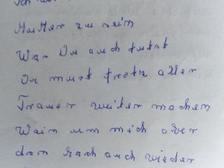 Mutter zu sein
Was Du auch tutst
Du must trotz aller
Trauer weiter machen
Wein um mich aber
dan lach auch wieder